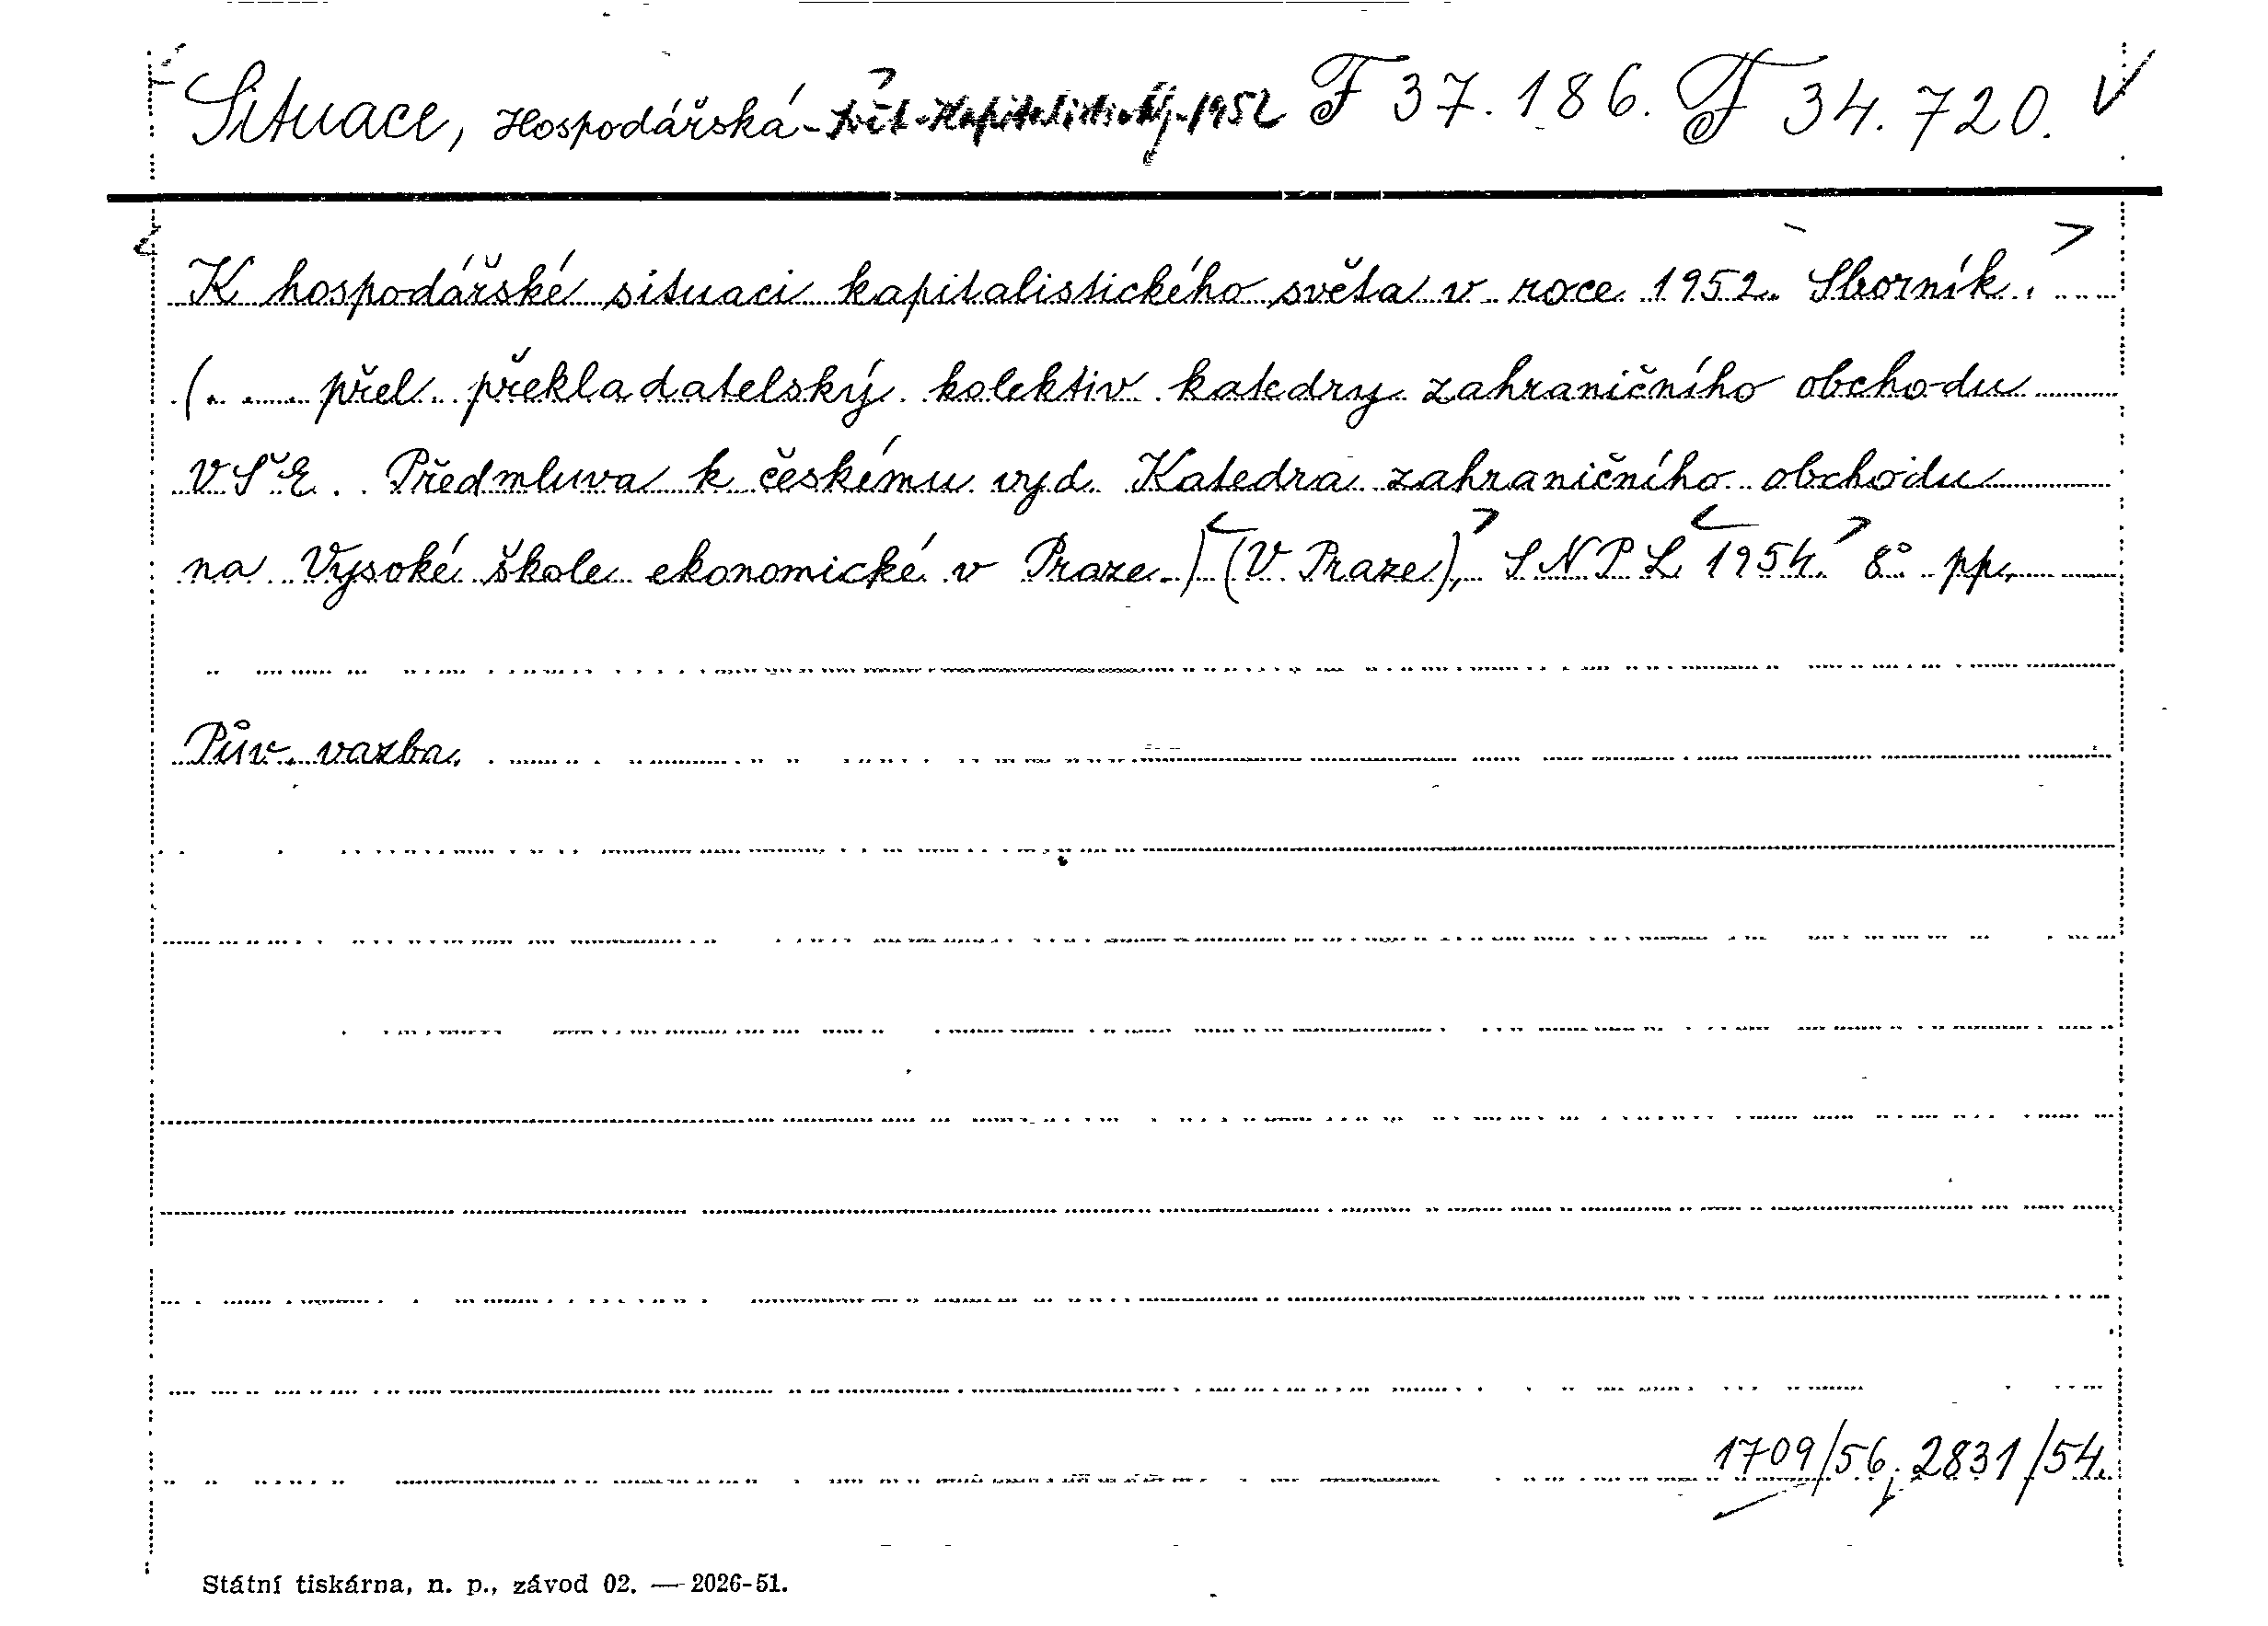 Situace, Hospodářská - Svět - Kapitalistický - 1952 F 37.186. F 34.720. V
K hospodářské situaci kapitalistického světa v roce 1952. Sborník.
(... přel. překladatelský kolektiv katedry zahraničního obchodu
VŠE. Předmluva k českému vyd. Katedra zahraničního obchodu
na Vysoké škole ekonomické v Praze.) (V Praze), SNPL 1954. 8° pp.
Pův. vazba.
1709/56, 2831/54.
Státní tiskárna, n. p., závod 02. — 2026-51.